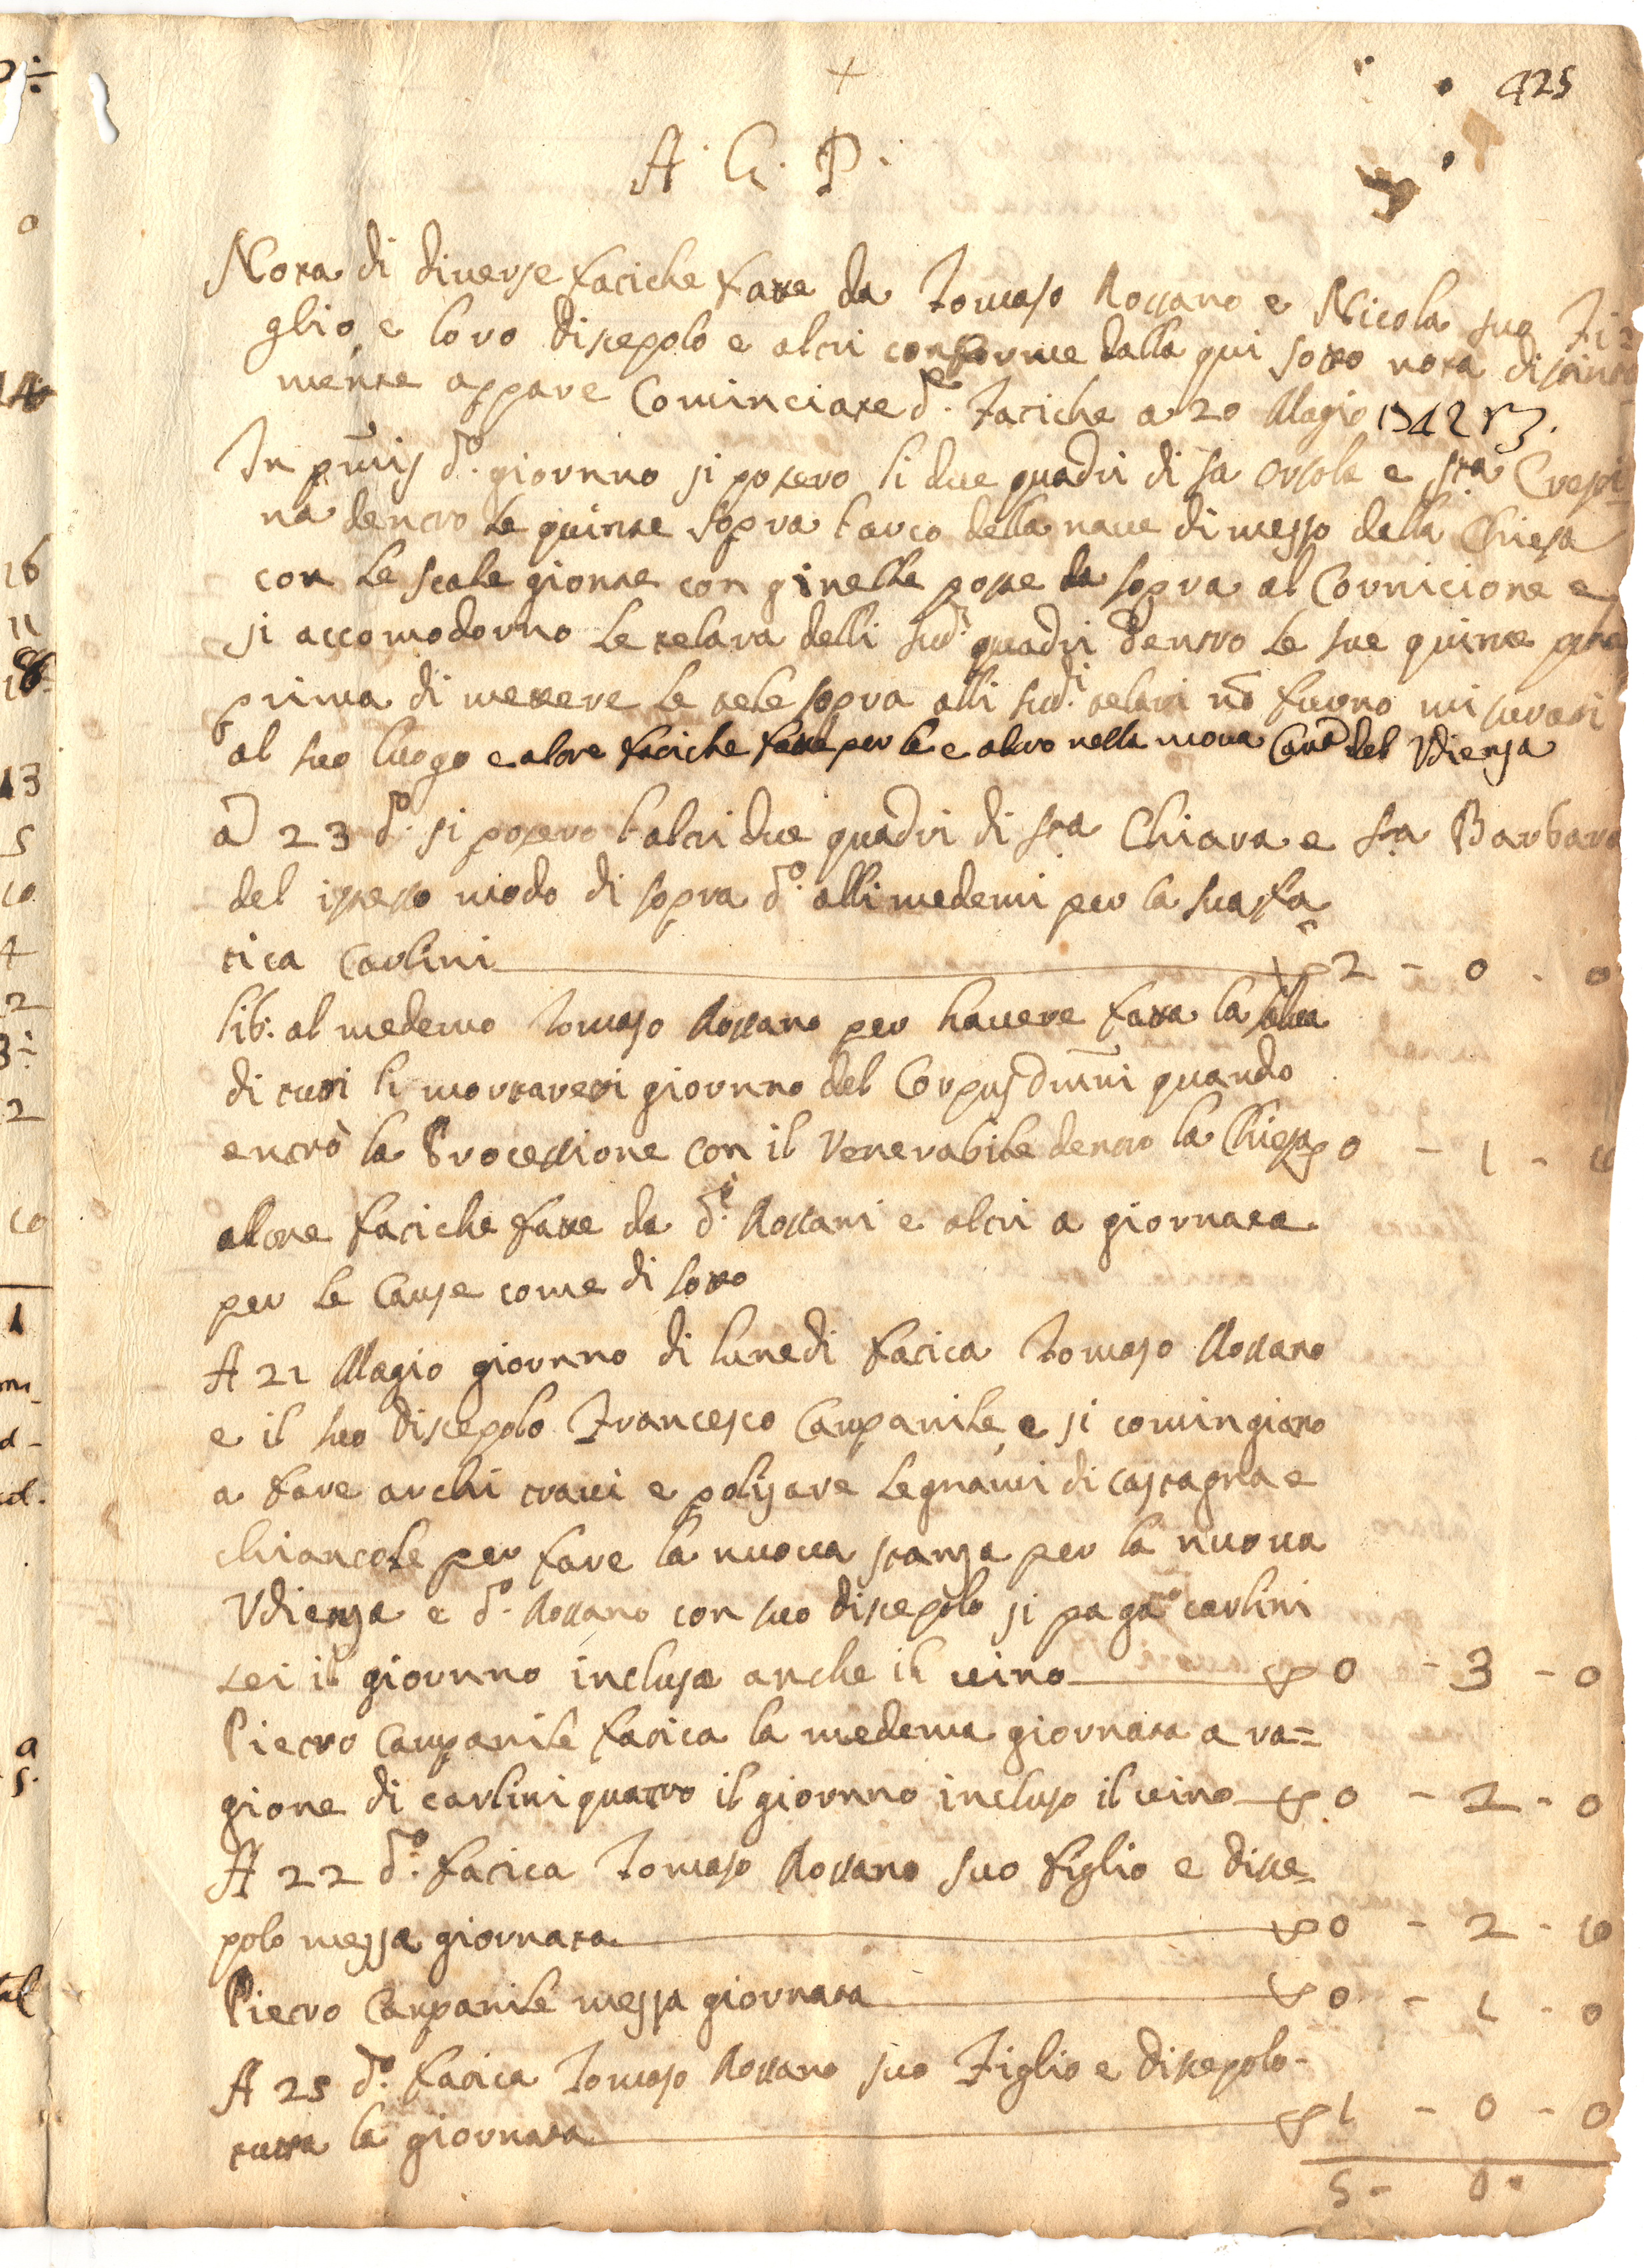 425
+
A. G. P.
Nota di diverse fatiche fatte da Tomaso Rossano e Nicola suo Fi
glio, e loro discepolo e altri conforme dalla qui sotto nota distinta
mente appare Cominciate d.e Fatiche a 20 Magio
In pmis d.o giornno si posero li due quadri di sa Orsola e sta Crespi
na dentro le quinte sopra l'arco della nave di mezzo della Chiesa
con le scale gionte con ginelle poste da sopra al Cornicione e
si accomodorno le telara delli sud.i quadri dentro le sue quinte pche
prima di mettere le tele sopra alli sud.i telari nō furno misurati
al suo luogo e altre fatiche fatte per la e altro nella nova Cam.a del Udienza
a 23 d.o si posero l'altri due quadri di sta Chiara e sta Barbara
del istesso modo di sopra d.o alli medemi per la sua fa
tica Carlini 2 - 0 - 0
lib. al medemo Tomaso Rossano per havere fatta la salva
di tutti li mortaretti giornno del Corpus Dmni quando
entrò la Processione con il Venerabile dentro la Chiesa 0 - 1 - 10
altre fatiche fatte da d.i Rossani e altri a giornata
per le Cause come di sotto
A 21 Magio giornno di lunedi fatica Tomaso Rossano
e il suo discepolo Francesco Campanile, e si comingiorno
a fare archi travi e polizare legnami di castagna e
chiancole per fare la nuova stanza per la nuova
Vdienza e d.o Rossano con suo discepolo si paga carlini
sei il giornno inclusa anche il vino 0 - 3 - 0
Pietro Campanile fatica la medema giornata a ra=
gione di carlini quattro il giornno incluso il vino 0 - 2 - 0
A 22 d.o fatica Tomaso Rossano suo figlio e disce=
polo mezza giornata 0 - 2 - 10
Pietro Campanile mezza giornata 0 - 1 - 0
A 25 d.o fatica Tomaso Rossano suo Figlio e discepolo
tutta la giornata 1 - 0 - 0
5 - 0 -